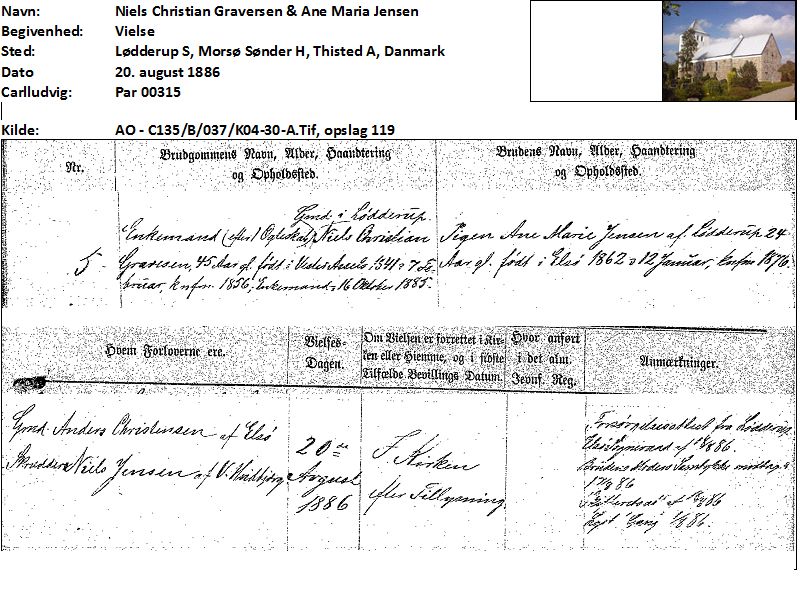 Navn: Niels Christian Graversen & Ane Maria Jensen
Begivenhed: Vielse
Sted: Lødderup S, Morsø Sønder H, Thisted A, Danmark
Dato 20. august 1886
Carlludvig: Par 00315
Kilde: AO - C135/B/037/K04-30-A.Tif, opslag 119
Nr.
Brudgommens Navn, Alder, Haandtering
og Opholdssted.
Brudens Navn, Alder, Haandtering
og Opholdssted.
5
Gmd i Lødderup.
Enkemand (efter) Niels Christian
Gravesen, 45 Aar gl. født i 1841 7 Fe-
bruar, knfm. 1856, Enkemand 16 Oktober 1885.
Pigen Ane Marie Jensen af Lødderup 24
Aar gl. født i Elsø 1862 12 Januar, knfm 1876.
Hvem Forloverne ere.
Vielses-
Dagen.
Om Vielsen er forrettet i Kir-
ken eller Hjemme, og i sidste
Tilfælde Bevillings Datum.
Hvor anført
i det alm.
Jevnf. Reg.
Anmærkninger.
Gmd Anders Christensen af Elsø
Skrædder Niels Jensen af V.
20de
August
1886
I Kirken
efter Tillysning
fra Lødderup
86